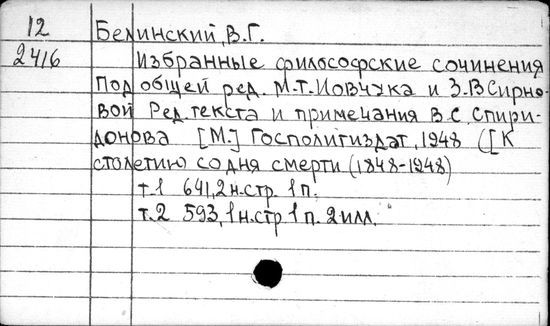 12 Белинский, В.Г.
2416 Избранные философские сочинения
Под общей ред. М.Т.Иовчука и З.В Сирно-
вой Ред.текста и примечания В.С. Спири-
донова [М.] Госполитиздат, 1948 ([К
столетию со дня смерти (1848-1948)
т.1 641,2 н.стр. 1 п.
т.2 593,1 н.стр 1 п. 2 илл.